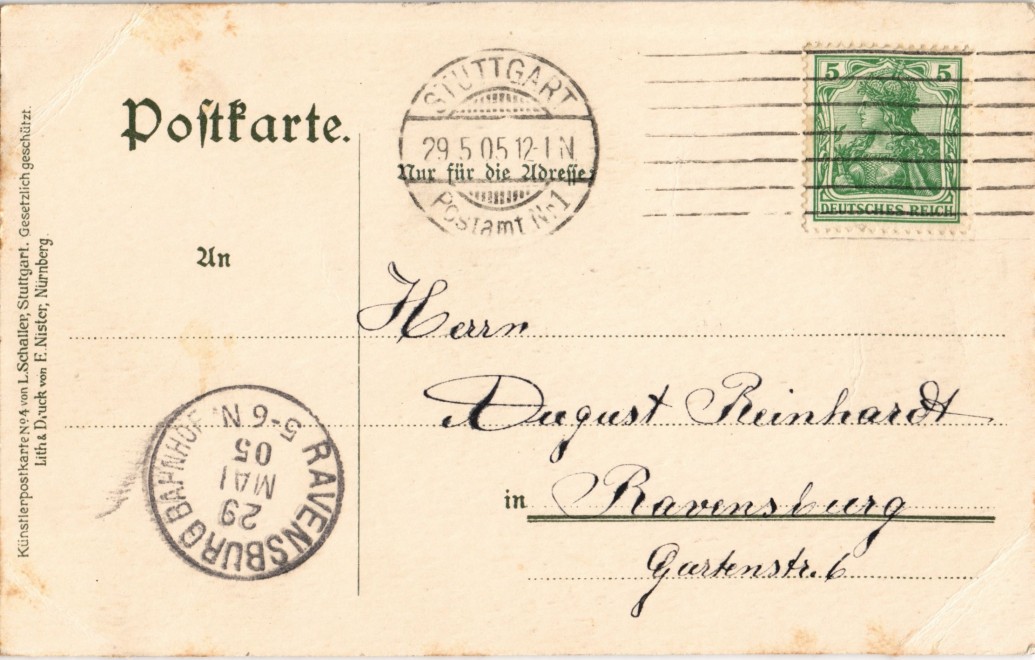 Künstlerpostkarte No 4 von L. Schaller, Stuttgart. Gesetzlich geschützt.
Lith & Druck von E. Nister, Nürnberg
Postkarte.
An
STUTTGART
29.5.05.12-1 N
Postamt Nr 1
Nur für die Adresse.
5 5
DEUTSCHES REICH
Herrn
August Reinhardt
in Ravensburg
Gartenstr. 6
RAVENSBURG BAHNHOF
29
MAI
05
5-6 N